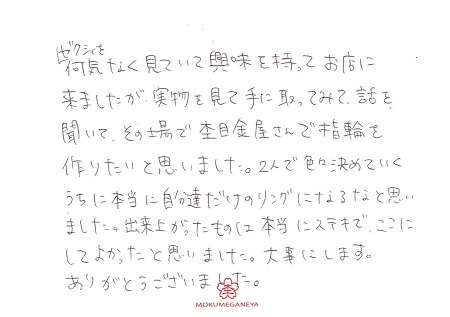 ゼクシィを
何気なく見ていて興味を持ってお店に
来ましたが、実物を見て手に取ってみて、話を
聞いて、その場で杢目金屋さんで指輪を
作りたいと思いました。2人で色々決めていく
うちに本当に自分達だけのリングになるなと思い
ました。出来上がったものは本当にステキで、ここに
してよかったと思いました。大事にします。
ありがとうございました。
MOKUMEGANEYA